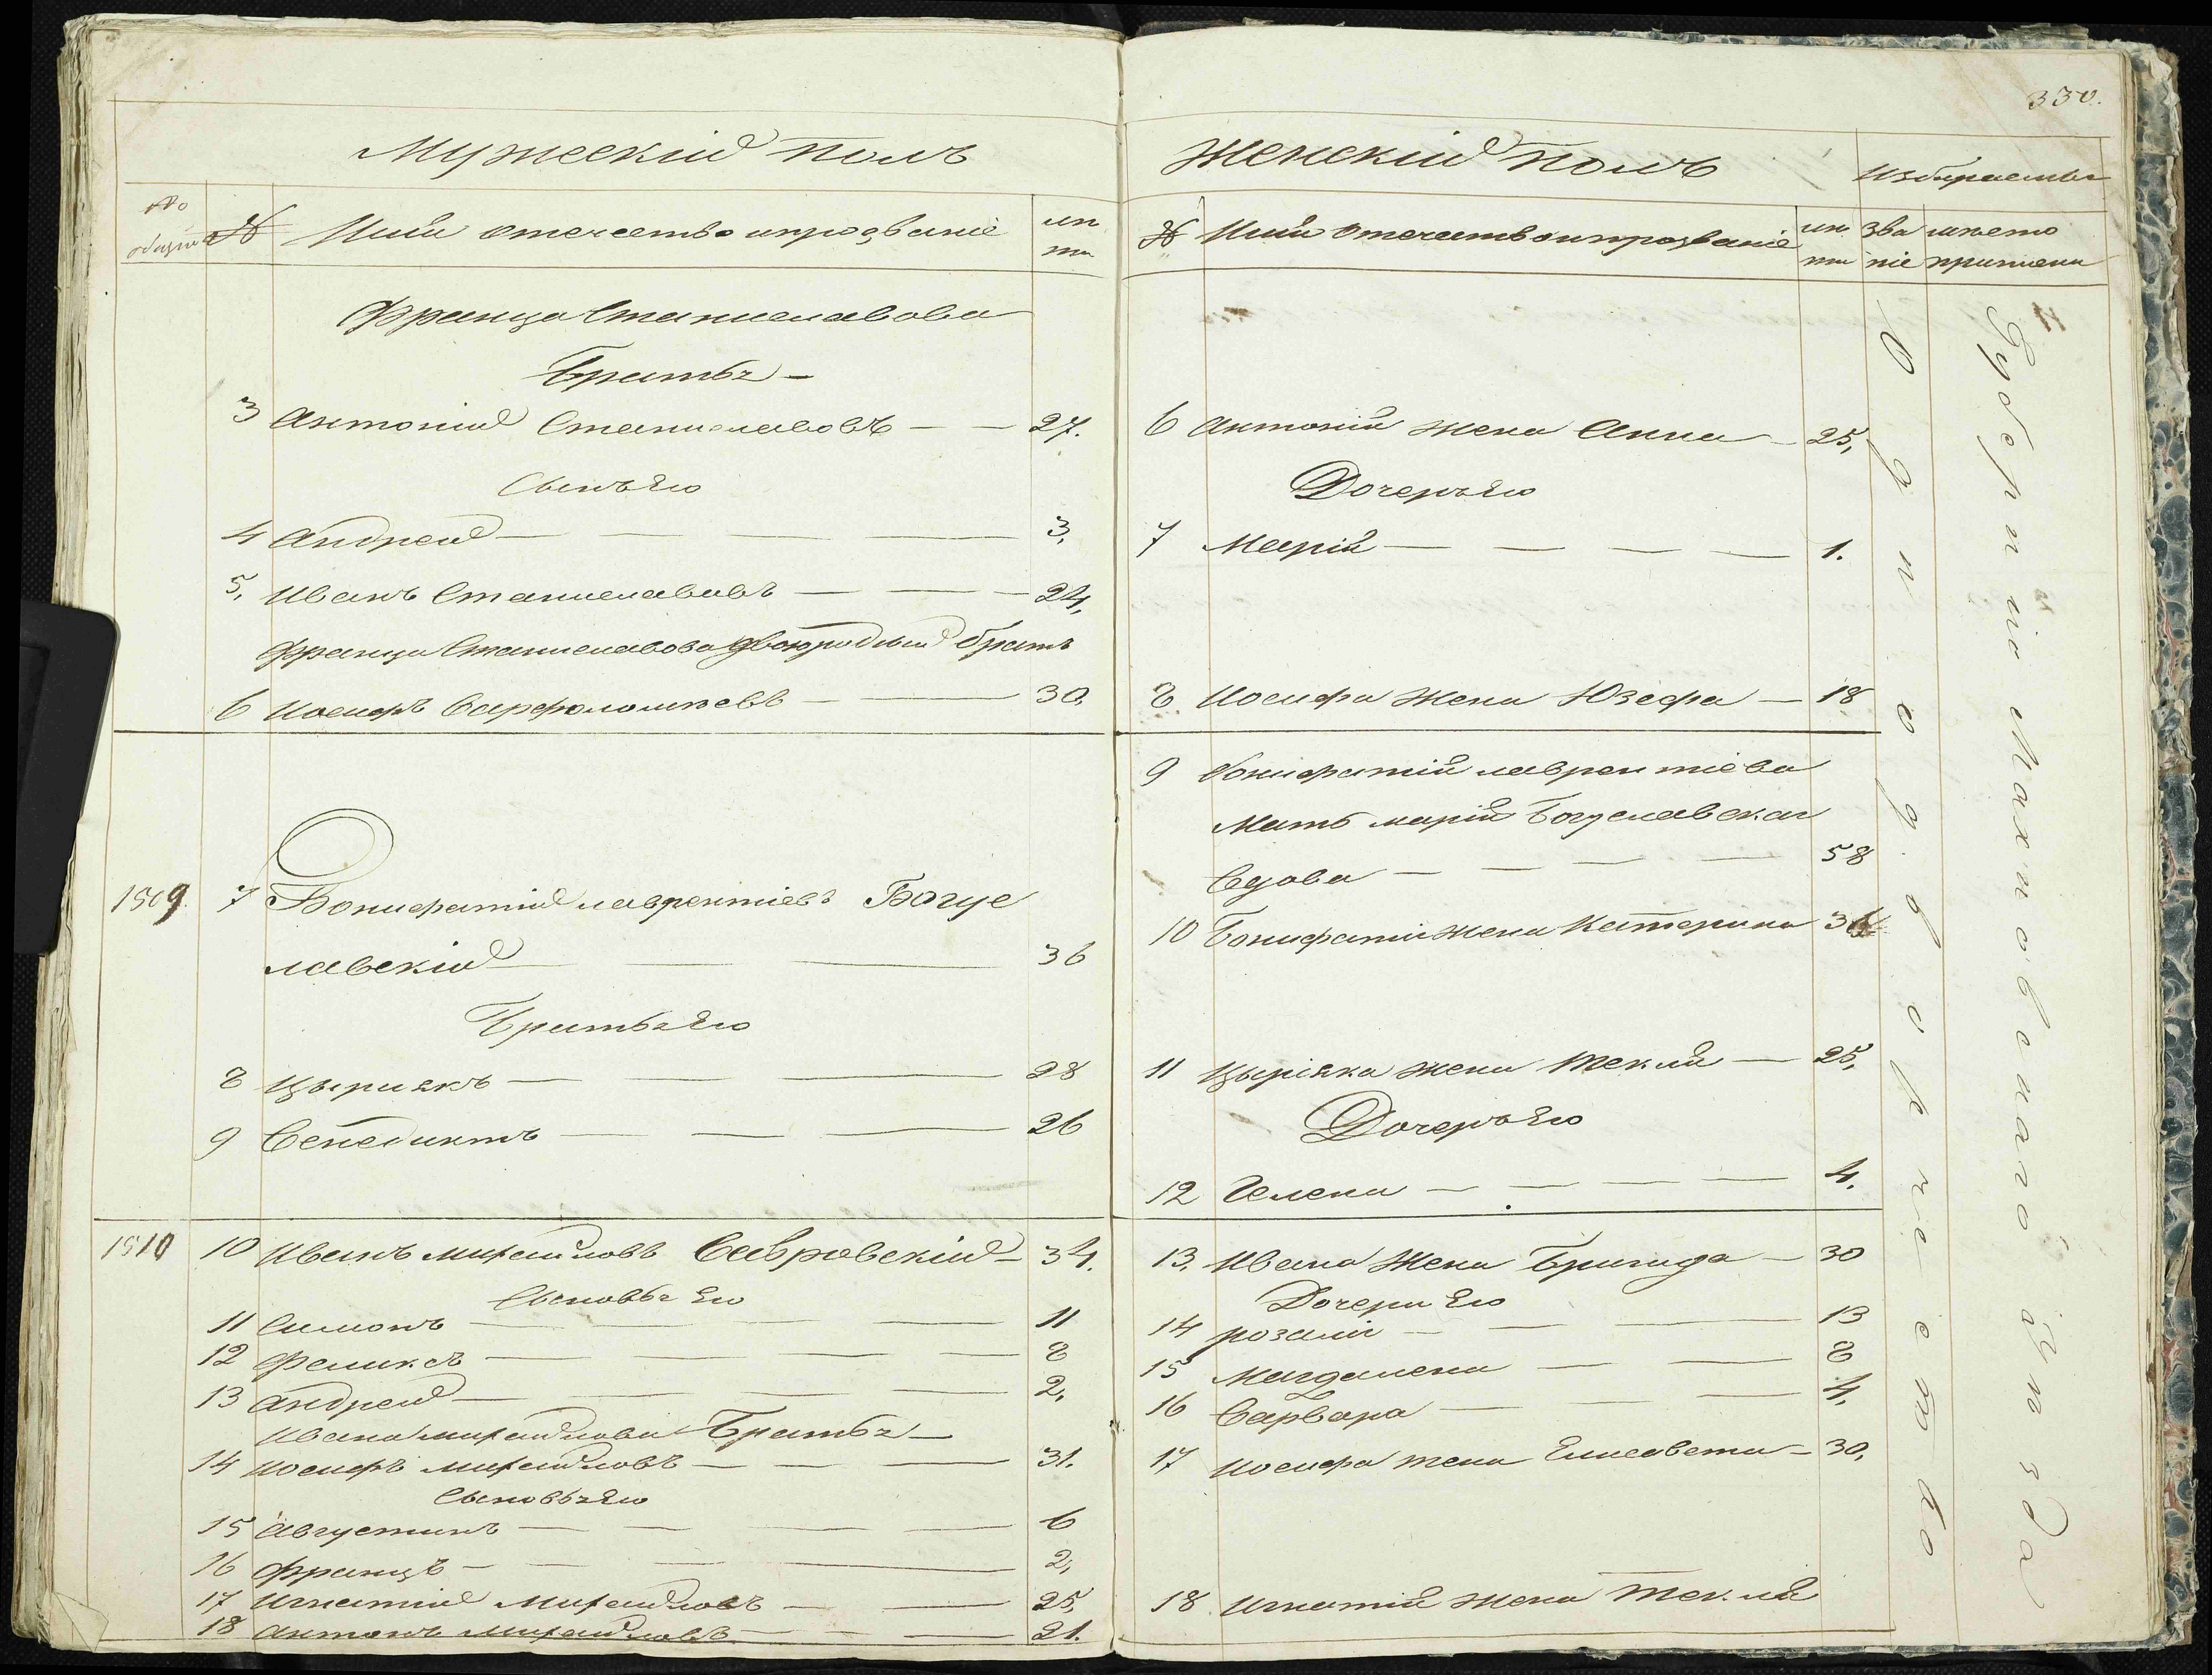 330.
Мужескій полъ
№ общій № Имя отечество и прозваніе лѣта
Франца Станиславова
Братья
3 Антоній Станиславовъ 27.
Сынъ Его
4 Андрей 3,
5, Иванъ Станиславовъ 24,
Франца Станиславова двоюродный братъ
6 Иосифъ Варфоломѣевъ 30,
1509. 7 Бонифатій лаврентіевъ Богус
лавскій 36
Братья Его
8 Цыриякъ 28
9 Венедиктъ 26
1510 10 Иванъ михайловъ Савровскій 34.
Сыновья Его
11 Симонъ 11
12 Феликсъ 8
13 андрей 2,
Ивана михайлова Братья
14 Иосифъ михайловъ 31.
Сыновья Его
15 Августинъ 6
16 францъ 2,
17 Игнатій Михайловъ 25,
18 антонъ михайловъ 21.
Женскій полъ
Избираемы
№ Имя Отечество и прозваніе лѣта званіе мѣсто
6 Антонія жена Анна 25,
Дочеръ Его
7 Марія 1.
8. Иосифа жена Юзефа 18
9 бонифатія лаврентіева
Мать марія Богуславская
Вдова 58
10 Бонифатія жена Катерина
11 Цыріяка жена Текля 25,
Дочеръ Его
12 Гелена 4.
13. Ивана Жена Бригида 30
Дочери Его
14 розалія 13
15 Магдалена 8
16 Варвара 4,
17 Иосифа жена Елисавета 30,
18. Игнатія жена Текля
Губерніи Махновскаго уѣзда